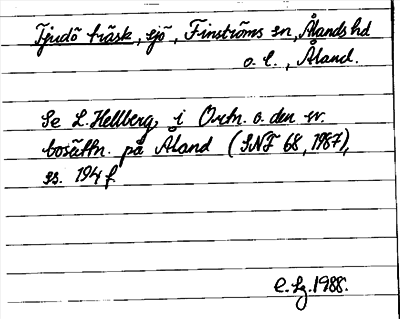 Tjudö träsk, sjö, Finströms sn, Ålands hd
o. l., Åland.
Se L. Hellberg, i Ortn. o. den sv.
bosättn. på Åland (SNF 68, 1987),
ss. 194 f.
C. Lg. 1988.